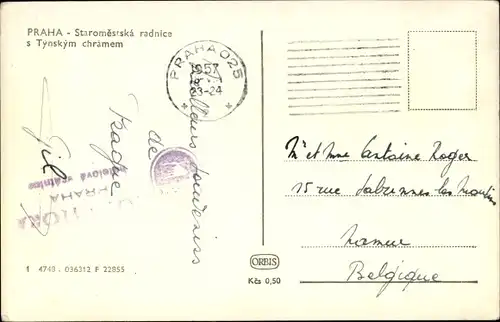 PRAHA - Staroměstská radnice
s Týnským chrámem
PRAHA 025
1957
23-24
Meilleurs souvenirs
de
Prague
Gil
PRAHA
1 4748 . 036312 F 22855
ORBIS
Kčs 0,50
Mr et Mme Antoine Roger
15 rue
Namur
Belgique